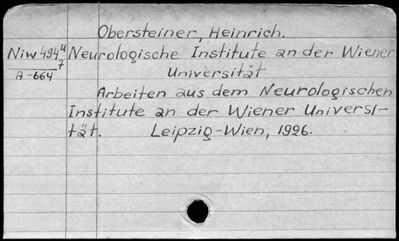 Obersteiner, Heinrich.
Niw 494 4/7 Neurologische Institute an der Wiener
A-664 Universität
Arbeiten aus dem Neurologischen
Institute an der Wiener Universi-
tät. Leipzig-Wien, 1926.